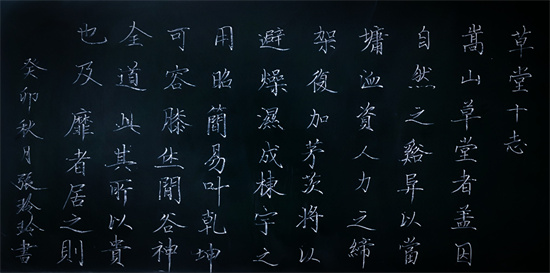 草堂十志
嵩山草堂者盖因
自然之谿异以當
墉洫資人力之締
架復加茅茨將以
避燥濕成棟宇之
用昭簡易叶乾坤
可容膝休閒谷神
全道此其所以貴
也及靡者居之則
癸卯秋月張玲玲書